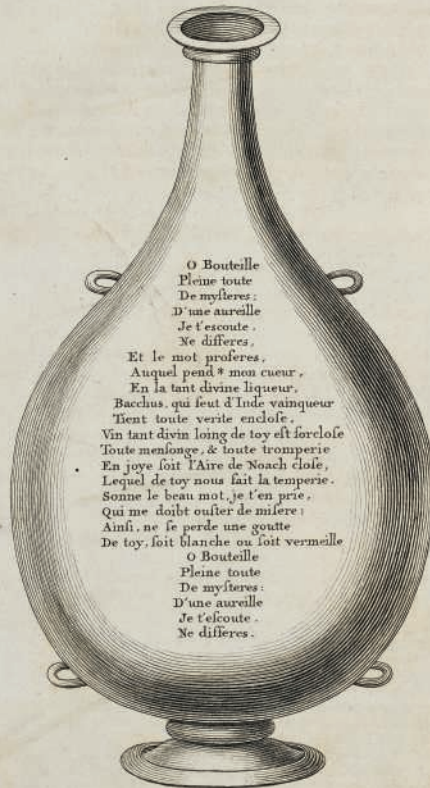 O Bouteille
Pleine toute
De myſteres :
D'une aureille
Je t'eſcoute .
Ne differes ,
Et le mot proferes ,
Auquel pend * mon cueur ,
En la tant divine liqueur ,
Bacchus , qui feut d'Inde vainqueur
Tient toute verite encloſe ,
Vin tant divin loing de toy eſt forcloſe
Toute menſonge , & toute tromperie
En joye ſoit l'Aire de Noach cloſe ,
Lequel de toy nous fait la temperie .
Sonne le beau mot , je t'en prie ,
Qui me doibt ouſter de miſere :
Ainſi , ne ſe perde une goutte
De toy , ſoit blanche ou ſoit vermeille
O Bouteille
Pleine toute
De myſteres :
D'une aureille
Je t'eſcoute .
Ne differes .